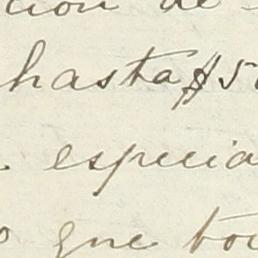 ción de
hasta $5
especia
que